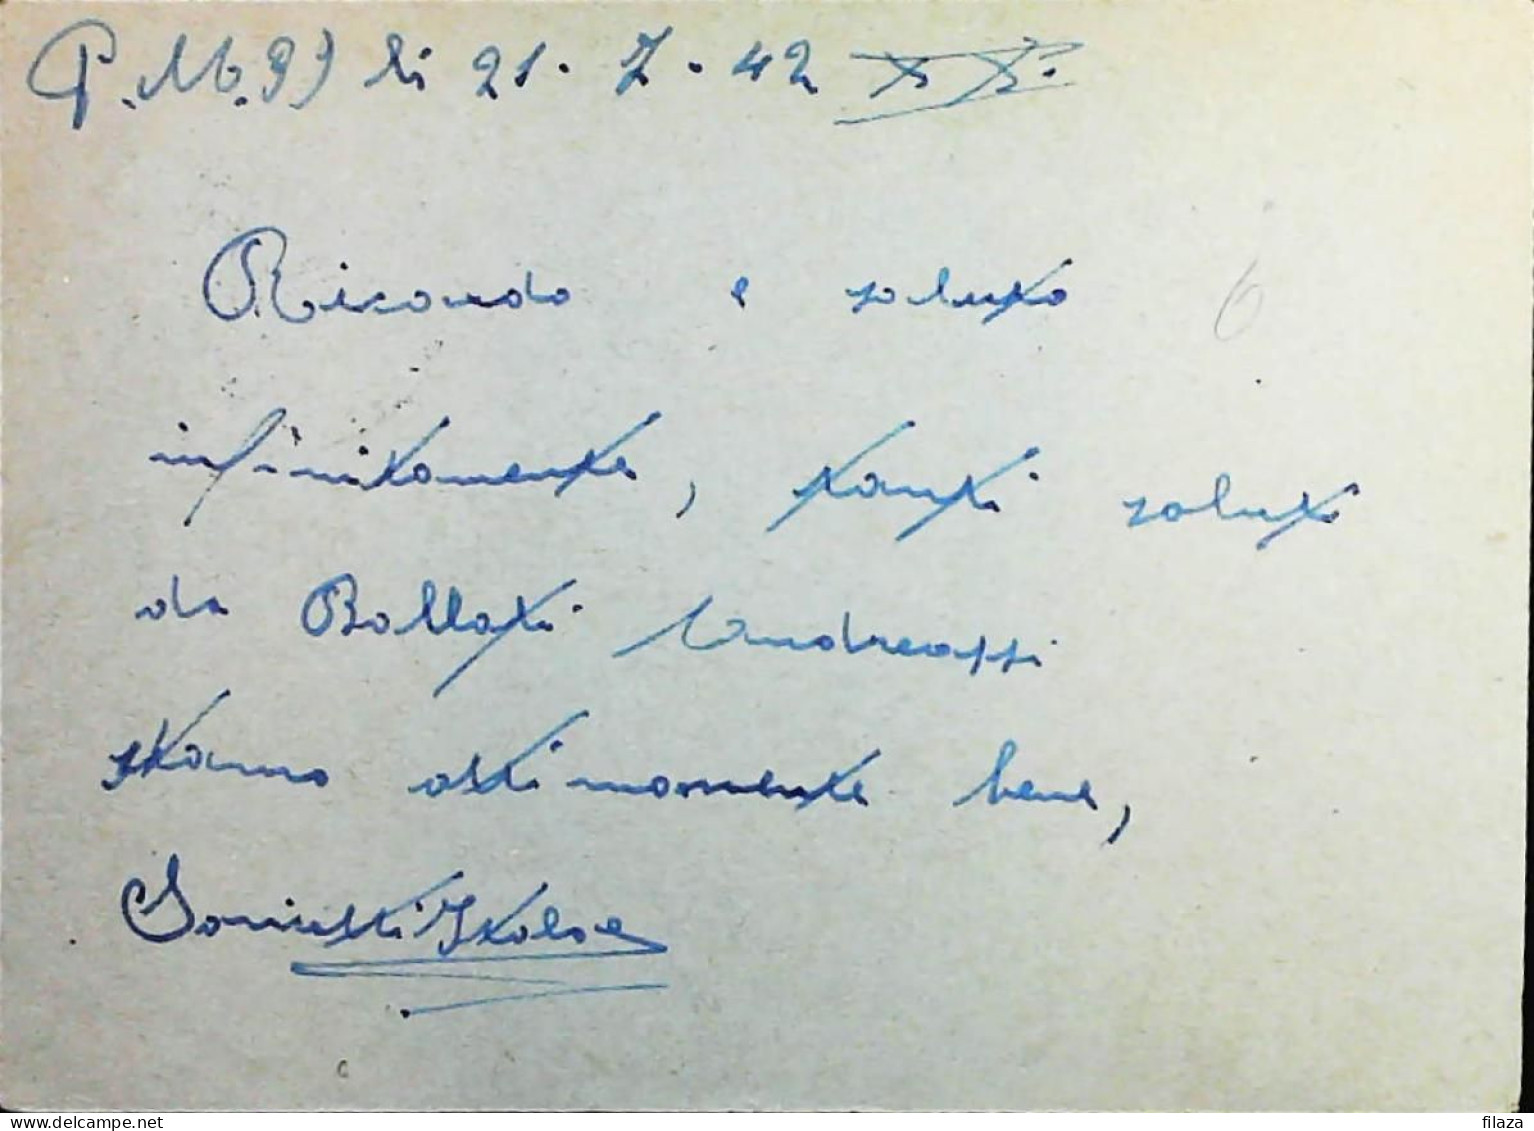 P.M. 99) li 21-7-42 XX.
Ricordo e saluto
infinitamente, tanti saluti
da Ballati Andreassi
stanno ottimamente bene,
Italo
filaza